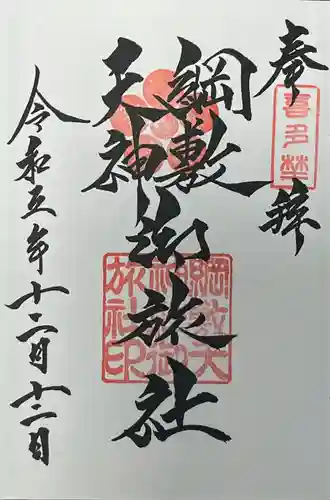 奉拝
喜多埜
綱敷
天神
御旅社
綱敷天
神社御
旅社印
令和五年十二月十二日